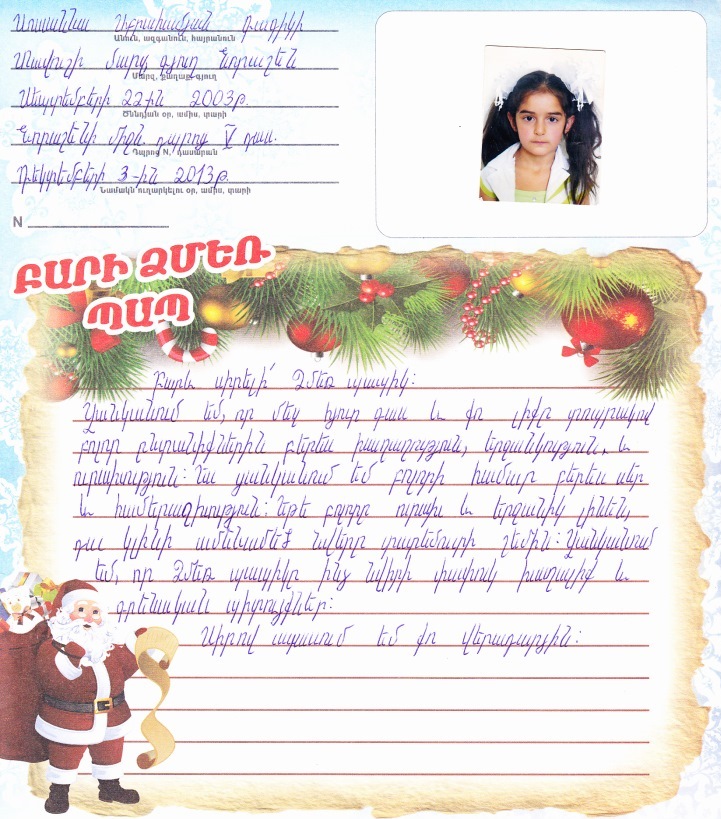 Սուսաննա Աբրահամյան Գագիկի
Անուն, ազգանուն, հայրանուն
Տավուշի մարզ գյուղ Նորաշեն
Մարզ, քաղաք-գյուղ
Սեպտեմբերի 22ին 2003թ.
Ծննդյան օր, ամիս, տարի
Նորաշենի միջն. դպրոց V դաս.
Դպրոց N, դասարան
Դեկտեմբերի 3-ին 2013թ.
Նամակն ուղարկելու օր, ամիս, տարի
N
ԲԱՐԻ ՁՄԵՌ
ՊԱՊ
Բարև սիրելի՛ Ձմեռ պապիկ:
Ցանկանում եմ, որ մեզ հյուր գաս և քո լիքը տոպրակով
բոլոր ընտանիքներին բերես խաղաղություն, երջանկություն, և
ուրախություն: Ես ցանկանում եմ բոլորի համար բերես սեր
և համերաշխություն: Եթե բոլորը ուրախ և երջանիկ լինեն,
դա կլինի ամենամեծ նվերը տարեմուտի շեմին: Ցանկանում
եմ, որ Ձմեռ պապիկը ինձ նվիրի փափուկ խաղալիք և
գրենական պիտույքներ:
Սիրով սպասում եմ քո վերադարձին: